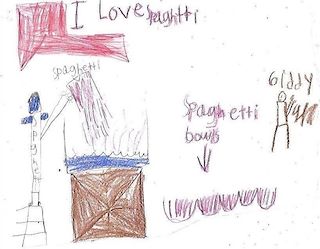 I Love spaghtti
spaghetti
Giddy
spaghetti
bowls
spaghetti